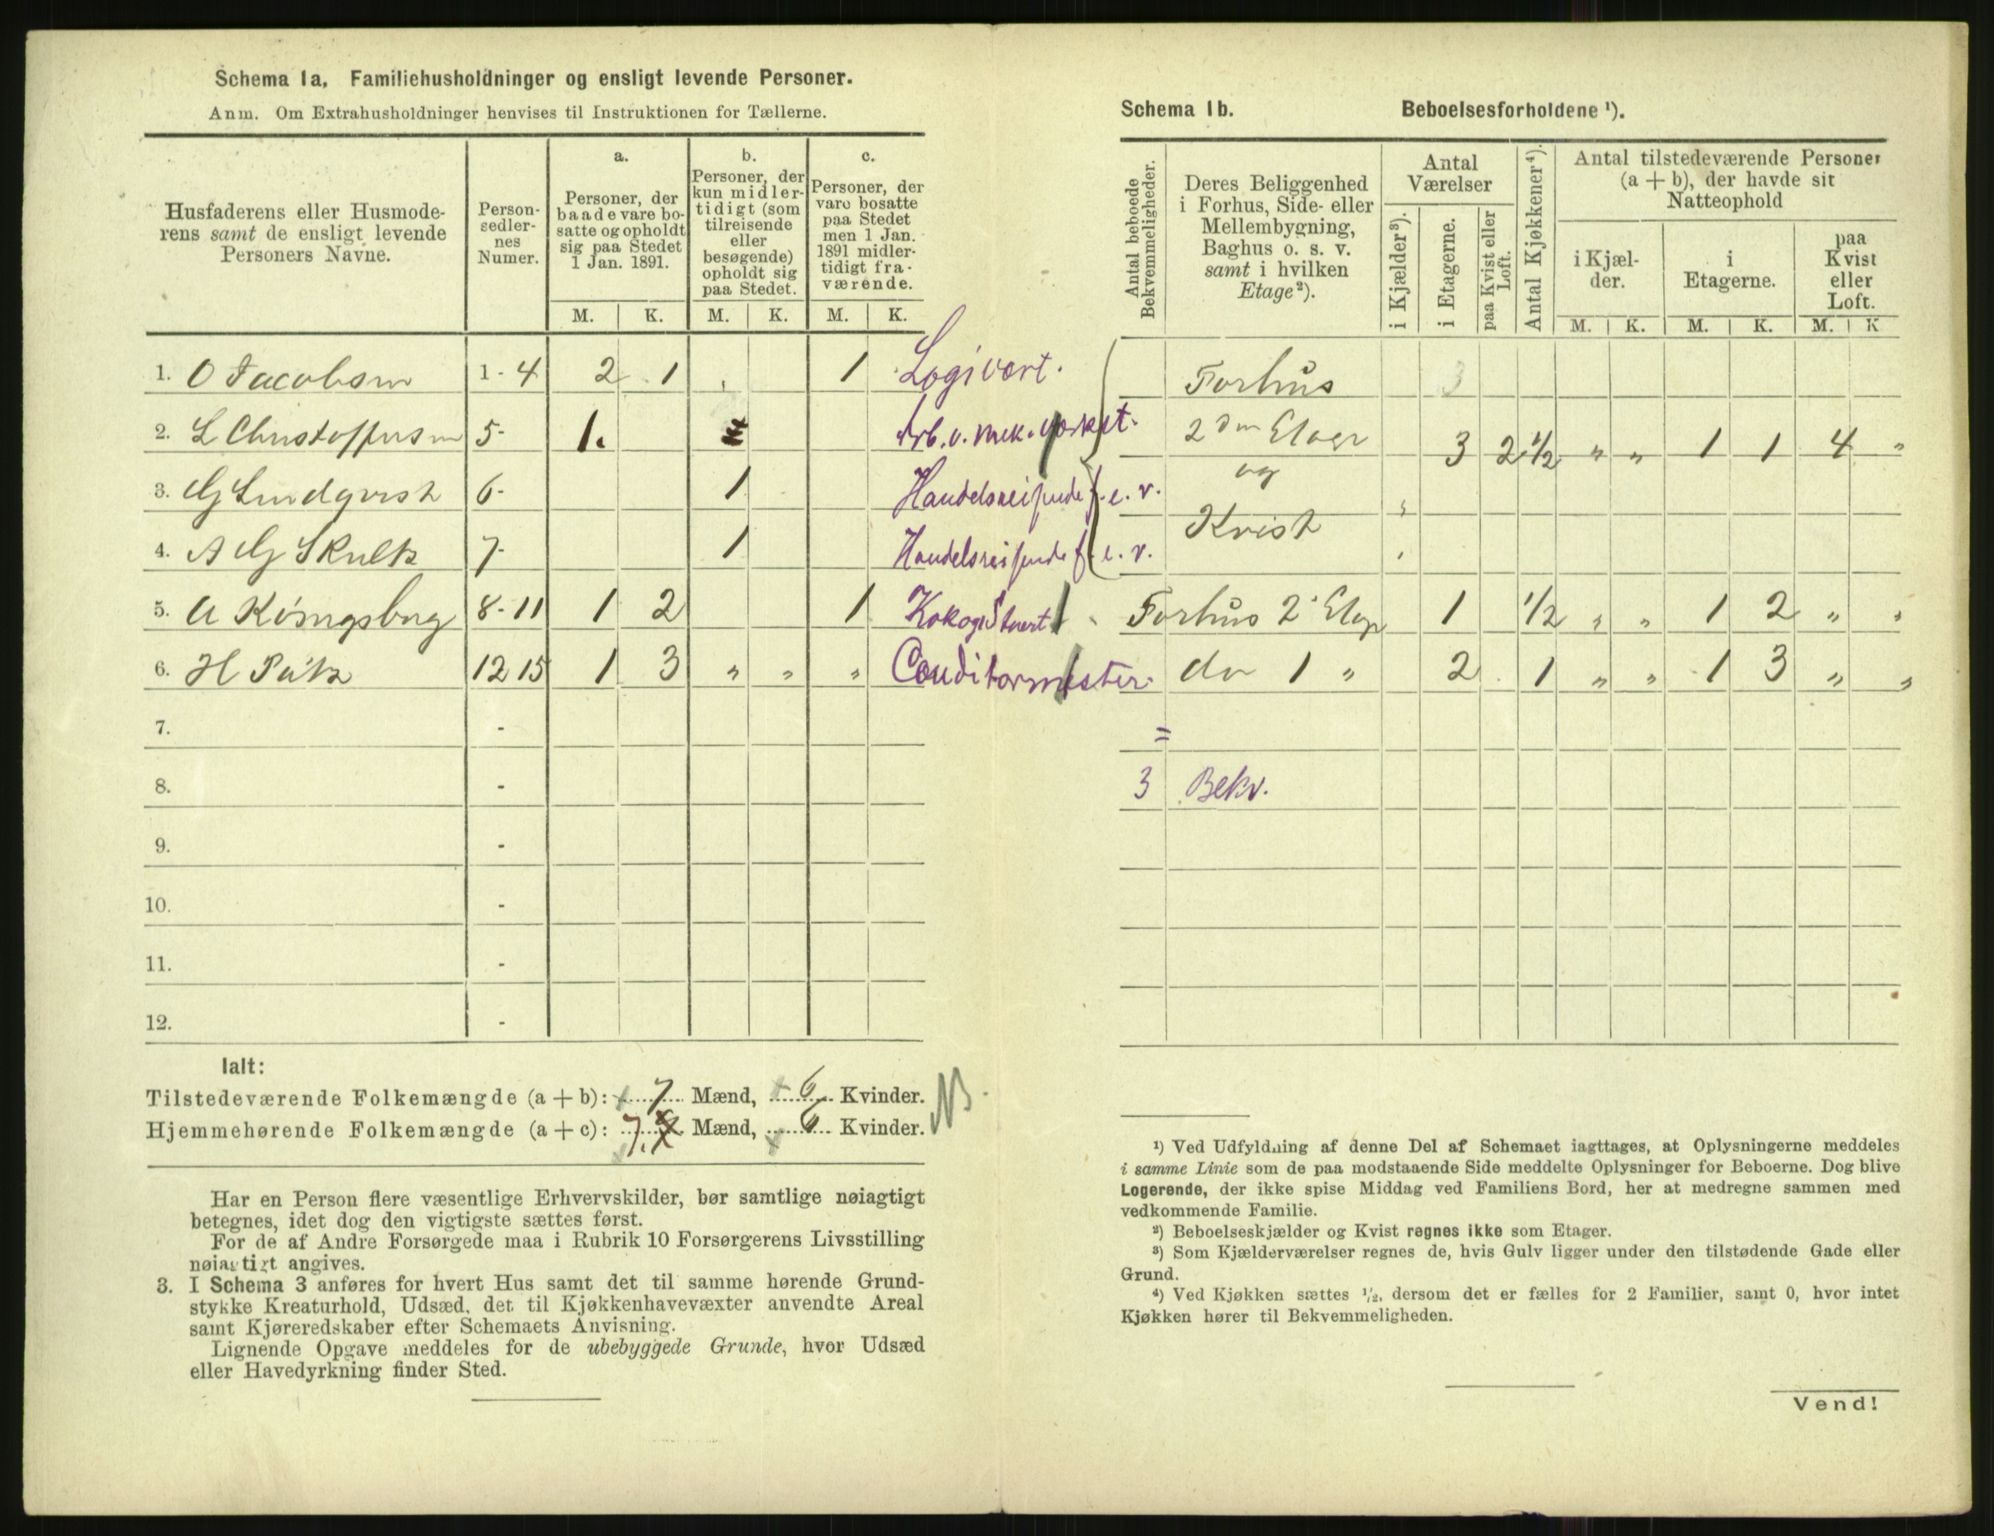 Schema 1a. Familiehusholdninger og ensligt levende Personer.
Anm. Om Extrahusholdninger henvises til Instruktionen for Tællerne.
Husfaderens eller Husmoderens samt de ensligt levende Personers Navne.
Personsedlernes Numer.
a.
Personer, der baade vare bosatte og opholdt sig paa Stedet 1 Jan. 1891.
b.
Personer, der kun midlertidigt (som tilreisende eller besøgende) opholdt sig paa Stedet.
c.
Personer, der vare bosatte paa Stedet men 1 Jan. 1891 midlertidigt fraværende.
M. K. M. K. M. K.
1. O Jacobsen 1 - 4 2 1 1 Logivært.
2. L Christoffersen 5 - 1. Arb. v. mek. værkst.
3. G Lindqvist 6 - 1 Handelsreisende f. e. v.
4. A G Skulk 7 - 1 Handelsreisende f. e. v.
5. A Königsberg 8 - 11 1 2 1 Kok og Stuert
6. H Pütz 12 15 1 3 " " " Conditormester
7. -
8. -
9. -
10. -
11. -
12. -
Ialt:
Tilstedeværende Folkemængde (a + b): 7 Mænd, 6 Kvinder.
Hjemmehørende Folkemængde (a + c): 7. Mænd, 6 Kvinder.
NB.
Har en Person flere væsentlige Erhvervskilder, bør samtlige nøiagtigt
betegnes, idet dog den vigtigste sættes først.
For de af Andre Forsørgede maa i Rubrik 10 Forsørgerens Livsstilling
nøiagtigt angives.
3. I Schema 3 anføres for hvert Hus samt det til samme hørende Grund-
stykke Kreaturhold, Udsæd, det til Kjøkkenhavevæxter anvendte Areal
samt Kjøreredskaber efter Schemaets Anvisning.
Lignende Opgave meddeles for de ubebyggede Grunde, hvor Udsæd
eller Havedyrkning finder Sted.
Schema 1b. Beboelsesforholdene ¹).
Antal beboede Bekvemmeligheder.
Deres Beliggenhed i Forhus, Side- eller Mellembygning, Baghus o. s. v. samt i hvilken Etage²).
Antal Værelser
i Kjælder³).
i Etagerne.
paa Kvist eller Loft.
Antal Kjøkkener⁴).
Antal tilstedeværende Personer (a + b), der havde sit Natteophold
i Kjælder.
i Etagerne.
paa Kvist eller Loft.
M. K. M. K. M. K
Forhus 3
2den Etage 3 2 1/2 " " 1 1 4 "
og
Kvist
Forhus 2. Etage 1 1/2 " " 1 2 " "
do 1 " 2 1 " " 1 3 " "
=
3 Bekv.
¹) Ved Udfyldning af denne Del af Schemaet iagttages, at Oplysningerne meddeles
i samme Linie som de paa modstaaende Side meddelte Oplysninger for Beboerne. Dog blive
Logerende, der ikke spise Middag ved Familiens Bord, her at medregne sammen med
vedkommende Familie.
²) Beboelseskjælder og Kvist regnes ikke som Etager.
³) Som Kjælderværelser regnes de, hvis Gulv ligger under den tilstødende Gade eller
Grund.
⁴) Ved Kjøkken sættes ¹/₂, dersom det er fælles for 2 Familier, samt 0, hvor intet
Kjøkken hører til Bekvemmeligheden.
Vend!